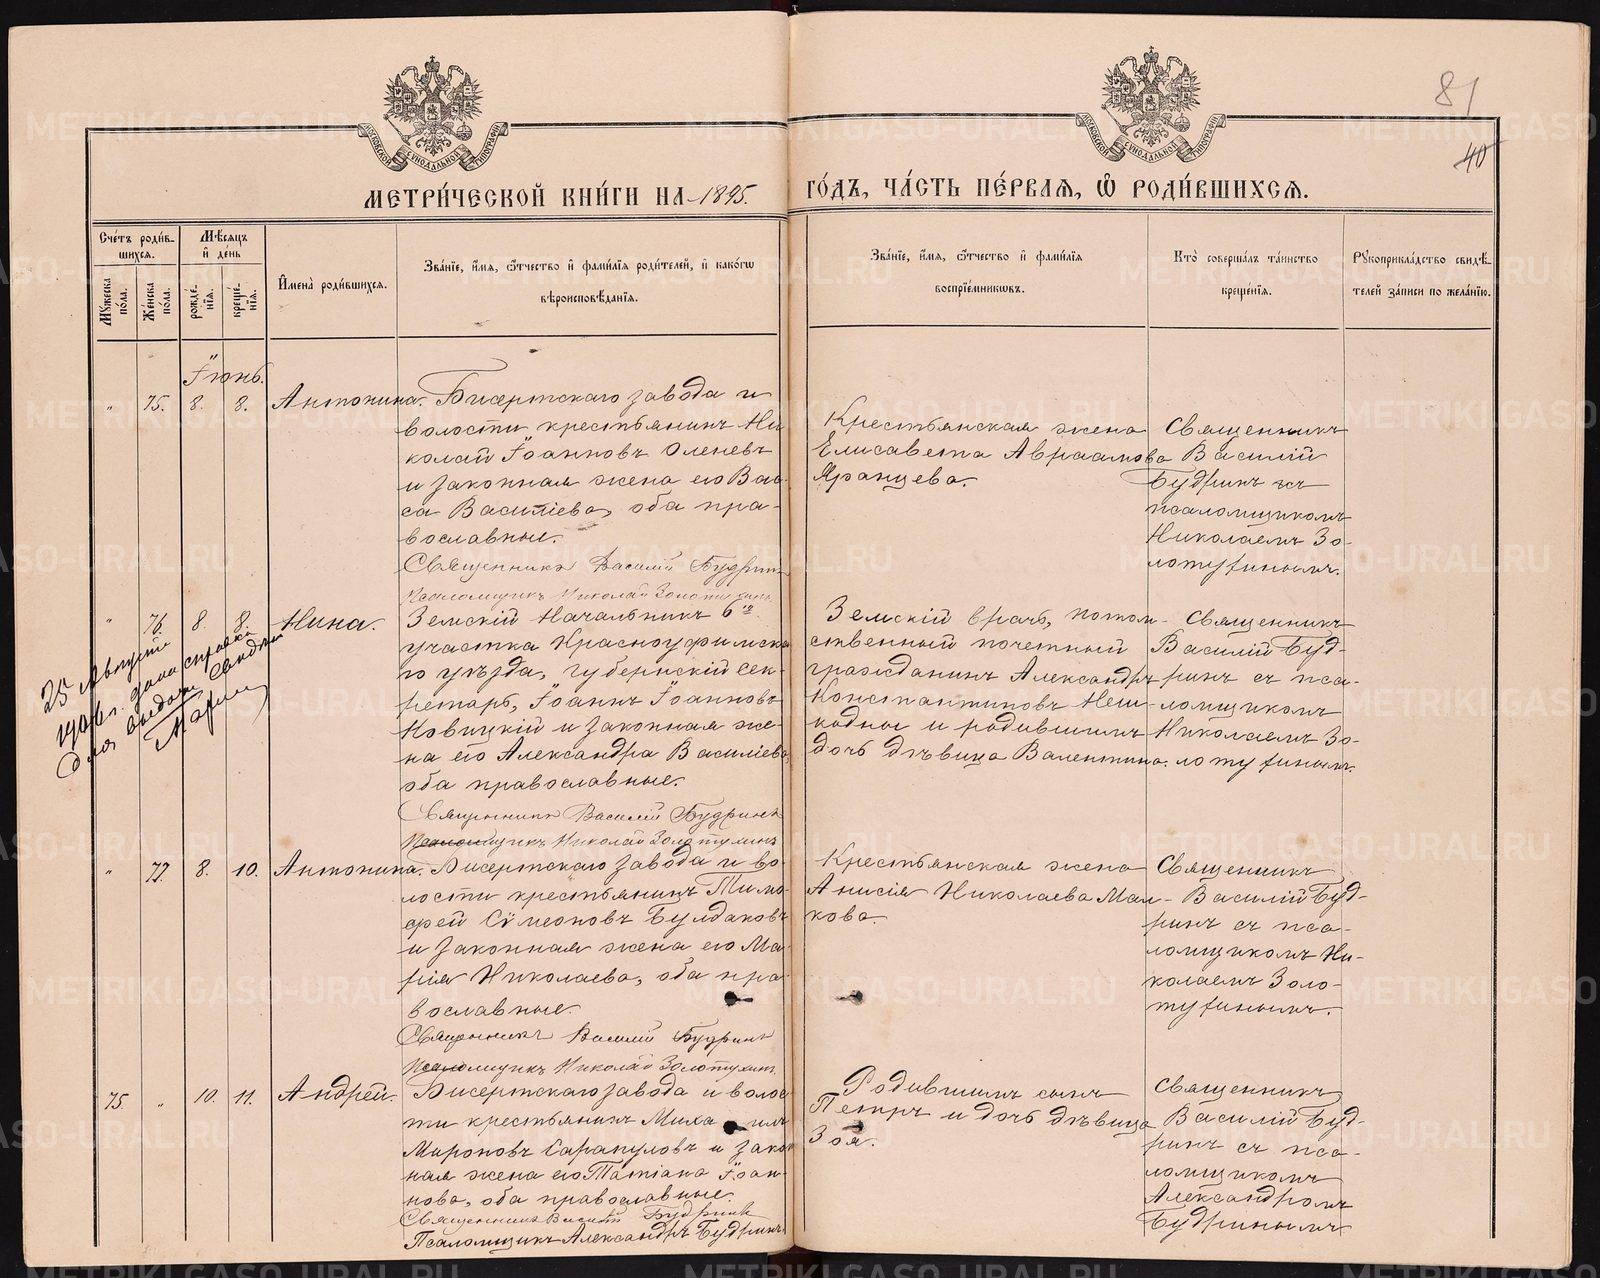 81
40
МОСКОВСКОЙ СУНОДАЛЬНОЙ ТИПОГРАФІИ
МОСКОВСКОЙ СУНОДАЛЬНОЙ ТИПОГРАФІИ
МЕТРИ́ЧЕСКОЙ КНИ́ГИ НА 1895. ГО́ДЪ, ЧА́СТЬ ПЕ́РВАЯ, Ѡ РОДИ́ВШИХСЯ.
Сче́тъ роди́в-
шихся.
Мѣ́сяцъ
и де́нь
Му́жеска
по́ла.
Же́нска
по́ла.
рожде́-
нїя.
креще́-
нїя.
Имена̀ роди́вшихся.
Зва́нїе, и́мя, ѻ҆́тчество и фами́лїя роди́телей, и како́гѡ
вѣроисповѣ́данїя.
Зва́нїе, и́мя, ѻ҆́тчество и фами́лїя
воспрїе́мникѡвъ.
Кто̀ соверша́лъ та́инство
креще́нїя.
Рꙋкоприкла́дство свидѣ́-
телей за́писи по жела́нїю.
Іюнь.
" 75. 8. 8. Антонина. Бисертскаго завода и
волости крестьянинъ Ни
колай Іоанновъ Оленевъ
и законная жена его Вас
са Васильева, оба пра-
вославные.
Священникъ Василій Будринъ
Псаломщикъ Николай Золотухинъ
Крестьянская жена
Елисавета Авраамова
Яранцева.
Священникъ
Василій
Будринъ съ
псаломщикомъ
Николаемъ Зо-
лотухинымъ.
" 76. 8. 8. Нина. Земскій Начальникъ 6го
участка Красноуфимска
го уѣзда, губернскій сек-
ретарь, Іоаннъ Іоанновъ
Новицкій и законная же-
на его Александра Васильева
оба православные.
Священникъ Василій Будринъ
Псаломщикъ Николай Золотухинъ
Земскій врачъ, потом-
ственный почетный
гражданинъ Александръ
Константиновъ
и родившимъ
дочь дѣвица Валентина.
Священникъ
Василій Буд-
ринъ съ пса-
ломщикомъ
Николаемъ Зо-
лотухинымъ.
25 Августа
1906 г. дана справка
для выдачи
" 77. 8. 10. Антонина. Бисертскаго завода и во-
лости крестьянинъ Тимо-
фей Сѵмеоновъ Булдаковъ
и законная жена его Ма-
рія Николаева, оба пра-
вославные.
Священникъ Василій Будринъ
Псаломщикъ Николай Золотухинъ
Крестьянская жена
Анисія Николаева Мал-
кова.
Священникъ
Василій Буд-
ринъ съ пса-
ломщикомъ Ни-
колаемъ Золо-
тухинымъ.
75. " 10. 11. Андрей. Бисертскаго завода и волос
ти крестьянинъ Михаилъ
Мироновъ Сарапуловъ и закон
ная жена его Татіана Іоан-
нова, оба православные.
Священникъ Василій Будринъ
Псаломщикъ Александръ Будринъ
Родившимъ сынъ
Петръ и дочь дѣвица
Зоя.
Священникъ
Василій Буд-
ринъ съ пса-
ломщикомъ
Александромъ
Будринымъ
METRIKI.GASO-URAL.RU